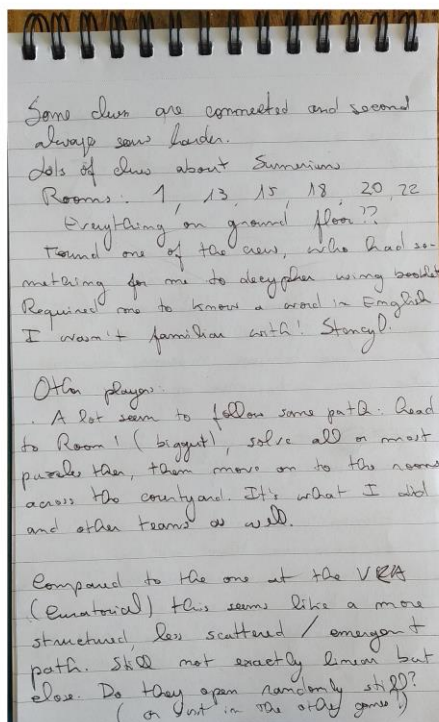 Some clues are connected and second
always seem harder.
Lots of clues about Sumerians
Rooms: 1, 13, 15, 18, 20, 22
Everything on ground floor??
Found one of the crew, who had so-
mething for me to decypher using booklet
Required me to know a word in English
I wasn't familiar with!
Other players:
. A lot seem to follow same path: head
to Room 1 (biggest), solve all or most
puzzles then, then move on to the rooms
across the courtyard. It's what I did
and other teams as well.
Compared to the one at the V&A
(Curatorial) this seems like a more
structured, less scattered / emergent
path. Still not exactly linear but
close. Do they open randomly still?
(or just in the other game?)